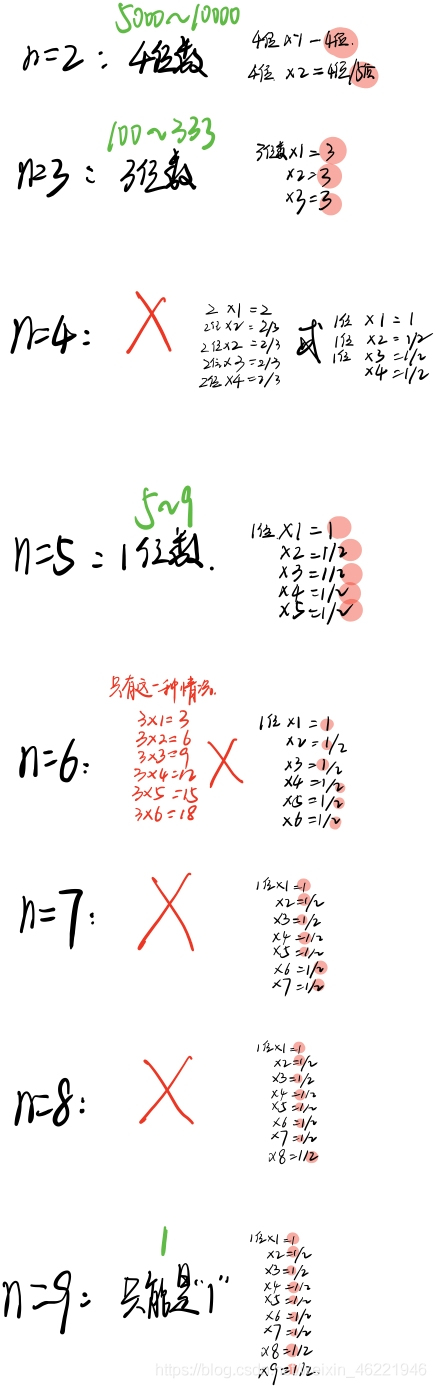 5000~10000
n=2: 4位数
4位 ×1=4位.
4位 ×2=4位/5位
100~333
n=3: 3位数
3位数×1=3
×2=3
×3=3
n=4: ×
2 ×1=2
2位×2=2/3
2位×2=2/3
2位×3=2/3
2位×4=2/3
或
1位 ×1=1
1位 ×2=1/2
1位 ×3=1/2
×4=1/2
5~9
n=5=1位数.
1位×1=1
×2=1/2
×3=1/2
×4=1/2
×5=1/2
只有这一种情况.
n=6:
3×1=3
3×2=6
3×3=9
3×4=12
3×5=15
3×6=18
×
1位×1=1
×2=1/2
×3=1/2
×4=1/2
×5=1/2
×6=1/2
n=7: ×
1位×1=1
×2=1/2
×3=1/2
×4=1/2
×5=1/2
×6=1/2
×7=1/2
n=8: ×
1位×1=1
×2=1/2
×3=1/2
×4=1/2
×5=1/2
×6=1/2
×7=1/2
×8=1/2
1
n=9: 只能是"1"
1位×1=1
×2=1/2
×3=1/2
×4=1/2
×5=1/2
×6=1/2
×7=1/2
×8=1/2
×9=1/2
https://blog.csdn.net/weixin_46221946